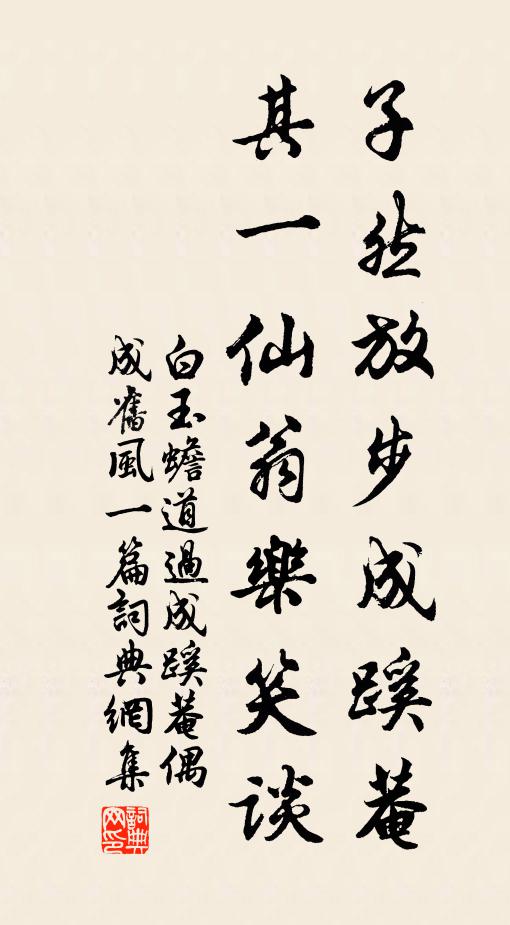 子然放步成蹊菴
其一仙翁樂笑談
白玉蟾道過成蹊菴偶
成舊風一篇詞典網集
詞典網印